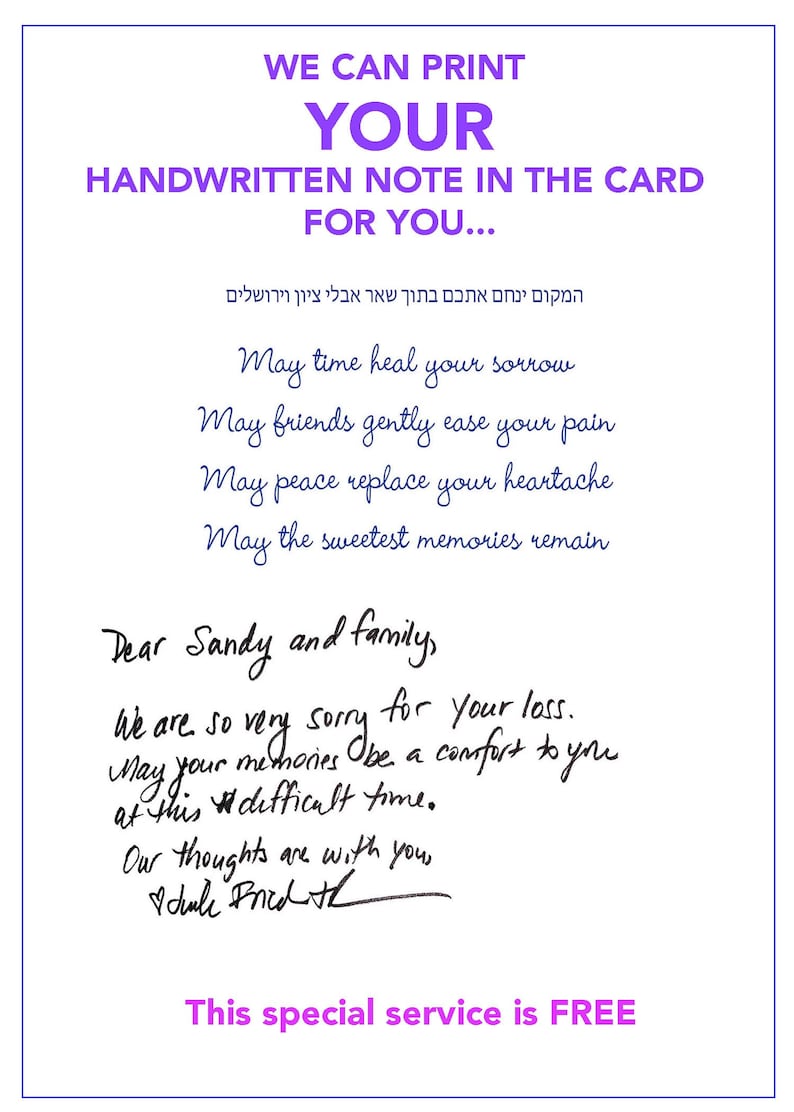 WE CAN PRINT
YOUR
HANDWRITTEN NOTE IN THE CARD
FOR YOU...
המקום ינחם אתכם בתוך שאר אבלי ציון וירושלים
May time heal your sorrow
May friends gently ease your pain
May peace replace your heartache
May the sweetest memories remain
Dear Sandy and family,
We are so very sorry for your loss.
May your memories be a comfort to you
at this difficult time.
Our thoughts are with you,
This special service is FREE